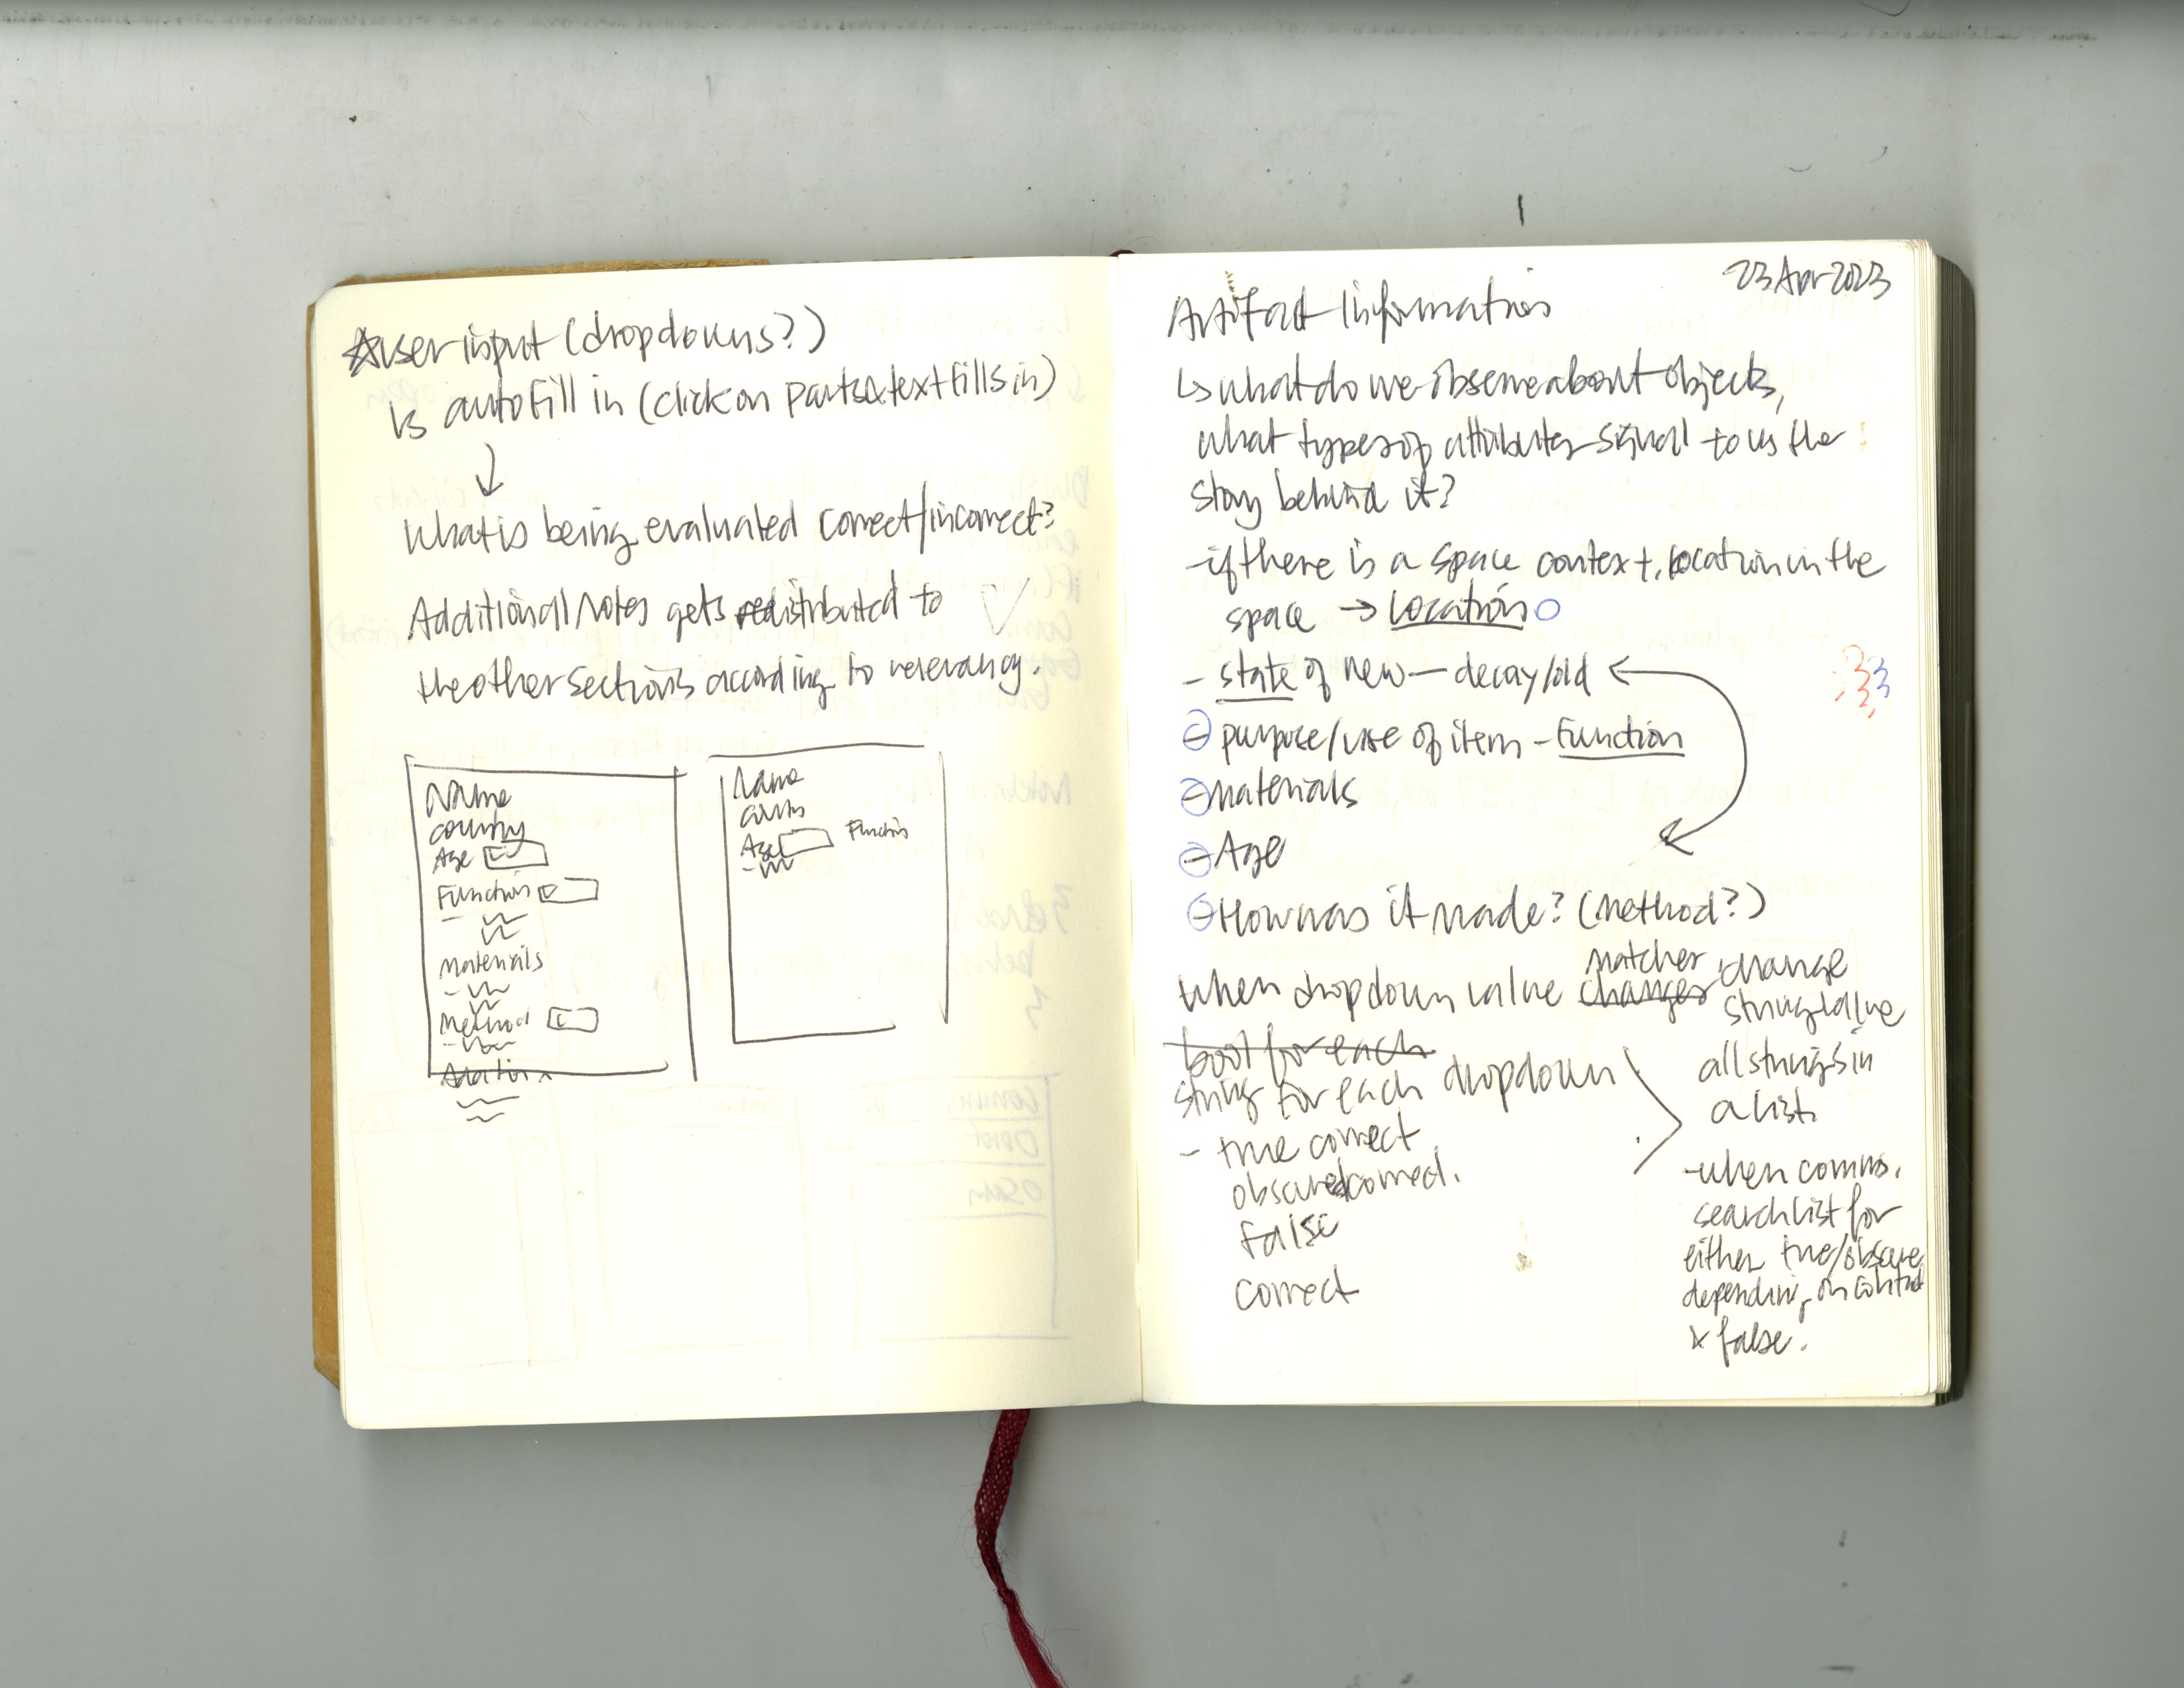 ☆user input (dropdowns?)
↳ autofill in (click on parts & text fills in)
↓
What is being evaluated correct/incorrect?
Additional Notes gets redistributed to
the other sections according to relevancy.
Name
country
Age
Function
Materials
Method
Name
Age
Function
23 Apr 2023
Artifact Information
↳ what do we observe about objects,
what types of attributes signal to us the
story behind it?
- if there is a space context, location in the
space → Location
- state of new — decay/old
- purpose/use of item - Function
- Materials
- Age
- How was it made? (Method?)
matches, change
when dropdown value changes
string value
bool for each
string for each dropdown
- true correct
obscured correct.
false
correct
all strings in
a list.
- when comms.
search list for
either true/obscure
depending on
& false.